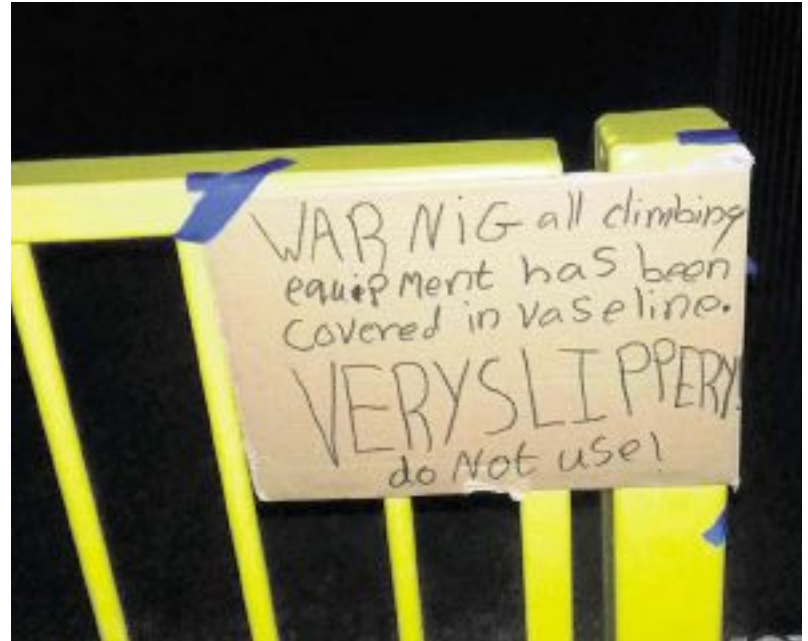 WARNiG all climbing
equipment has been
covered in vaseline.
VERY SLIPPERY!
do Not use!